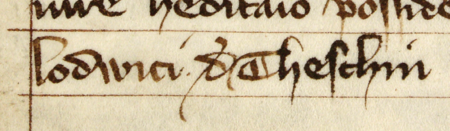 iure heditaio posside
lodwici d Theschin